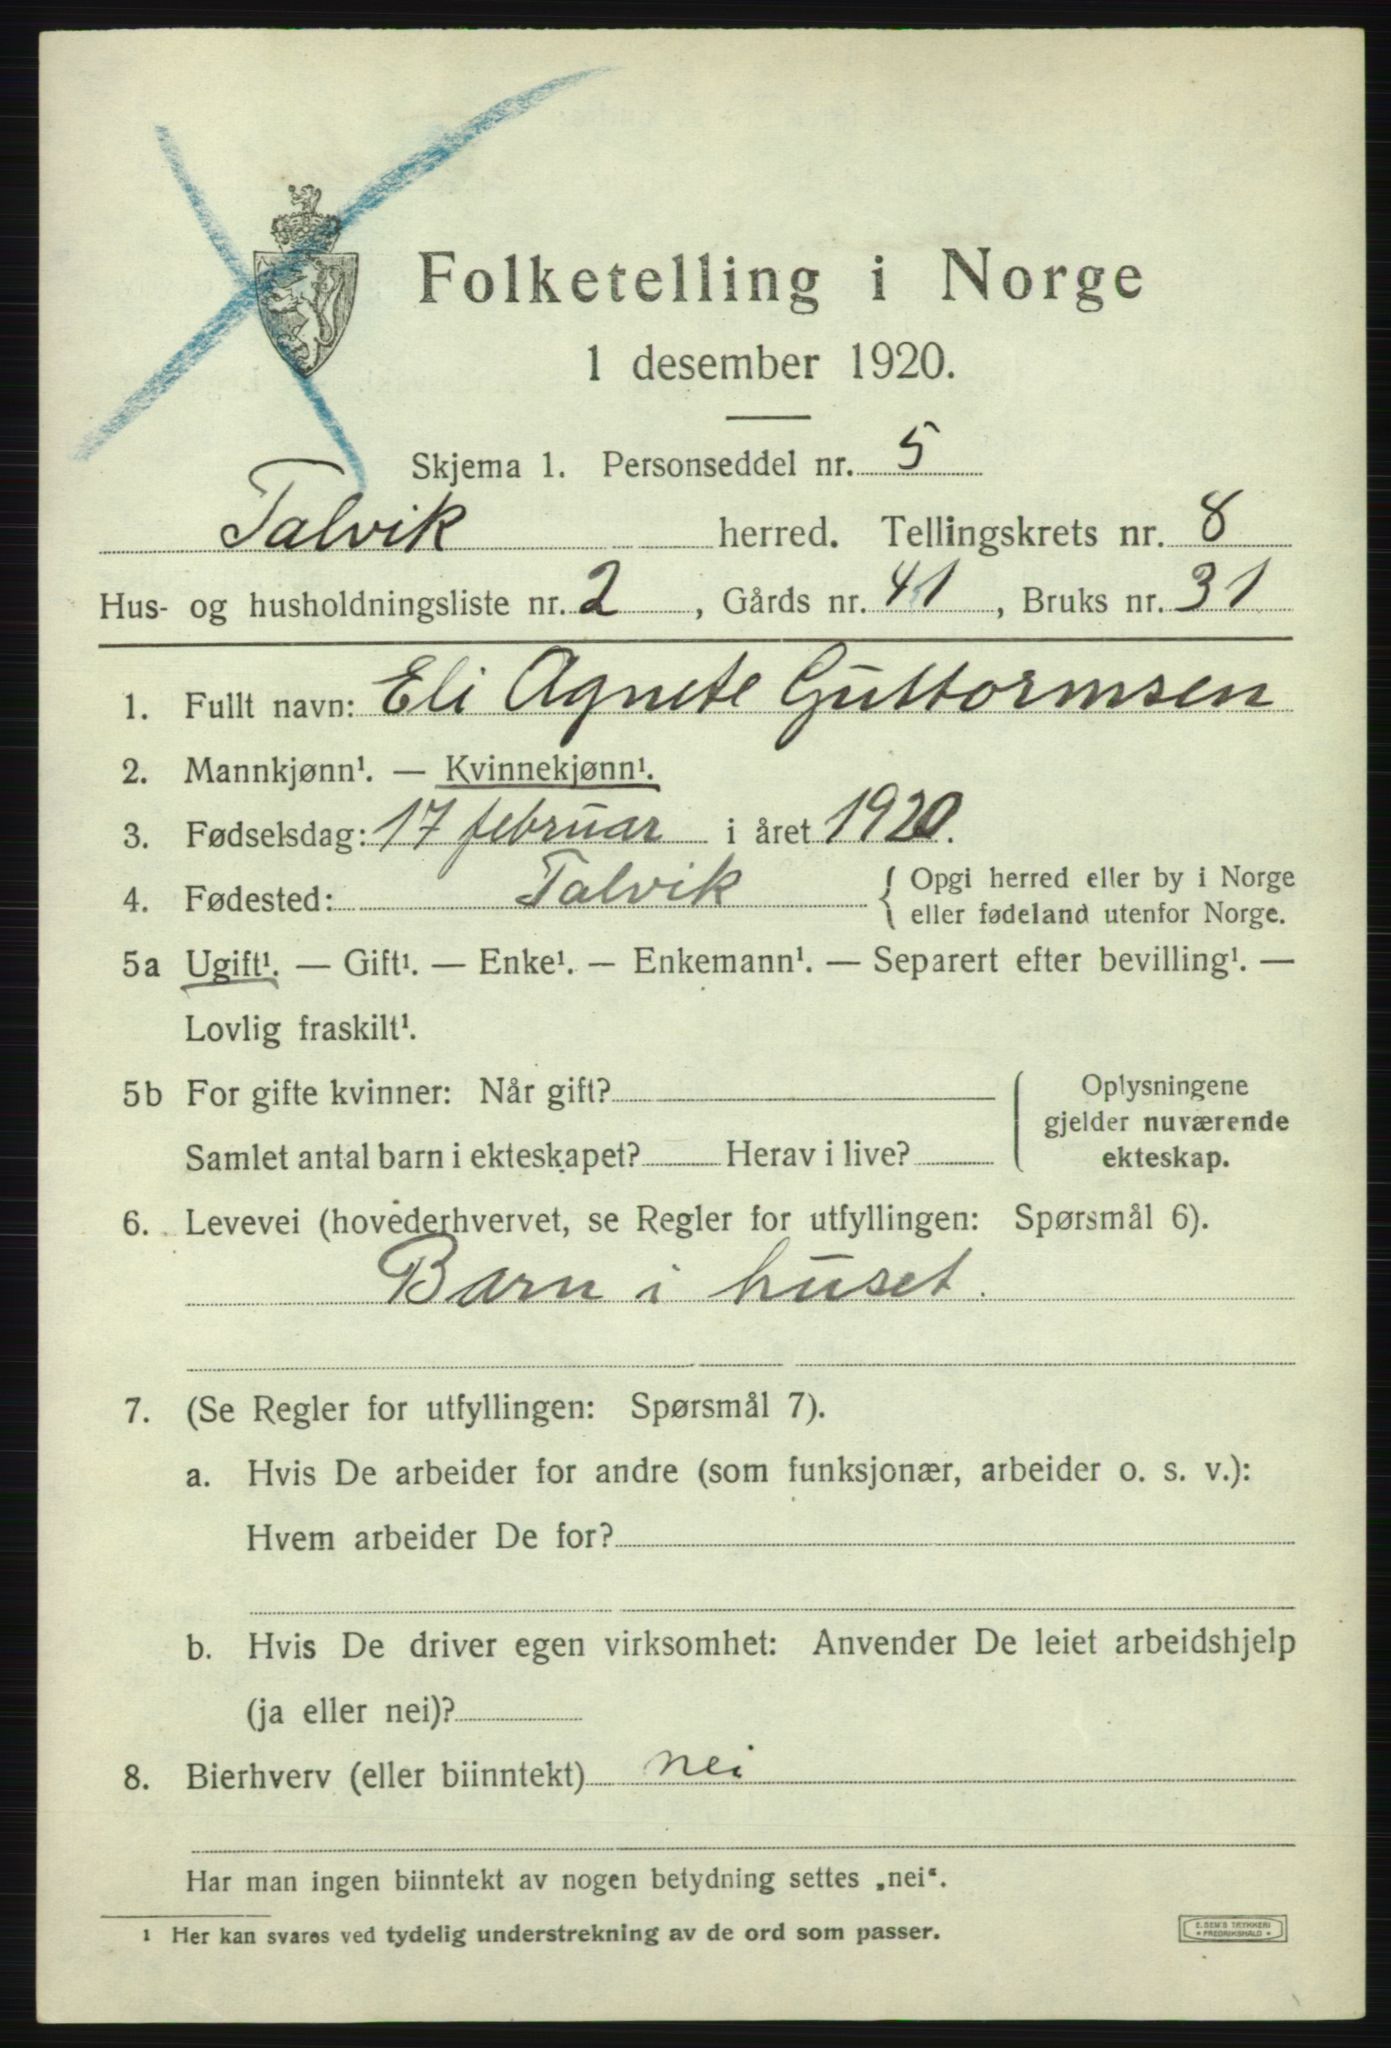 Folketelling i Norge
1 desember 1920.
Skjema 1. Personseddel nr. 5
Talvik herred. Tellingskrets nr. 8
Hus- og husholdningsliste nr. 2, Gårds nr. 41, Bruks nr. 31
1. Fullt navn: Eli Agnete Guttormsen
2. Mannkjønn¹. — Kvinnekjønn¹.
3. Fødselsdag: 17 februar i året 1920.
4. Fødested: Talvik { Opgi herred eller by i Norge
eller fødeland utenfor Norge.
5a Ugift¹. — Gift¹. — Enke¹. — Enkemann¹. — Separert efter bevilling¹. —
Lovlig fraskilt¹.
5b For gifte kvinner: Når gift?
Samlet antal barn i ekteskapet? Herav i live?
Oplysningene
gjelder nuværende
ekteskap.
6. Levevei (hovederhvervet, se Regler for utfyllingen: Spørsmål 6).
Barn i huset.
7. (Se Regler for utfyllingen: Spørsmål 7).
a. Hvis De arbeider for andre (som funksjonær, arbeider o. s. v.):
Hvem arbeider De for?
b. Hvis De driver egen virksomhet: Anvender De leiet arbeidshjelp
(ja eller nei)?
8. Bierhverv (eller biinntekt) nei
Har man ingen biinntekt av nogen betydning settes „nei“.
¹ Her kan svares ved tydelig understrekning av de ord som passer.
E. SEM'S TRYKKERI
• FREDRIKSHALD •